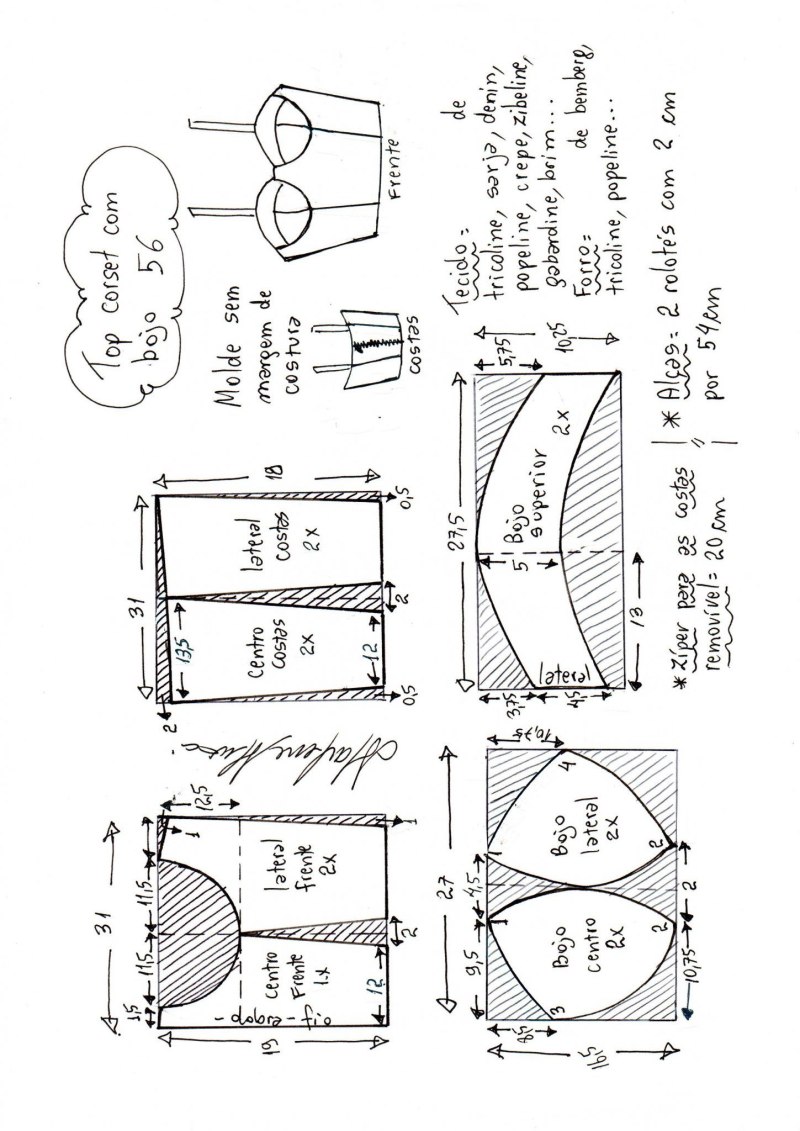 Top corset com
bojo 56
Molde sem
margem de
costura
Frente
costas
Tecido = de
tricoline, sarja, denin,
popeline, crepe, zibeline,
gabardine, brim...
Forro = de bemberg,
tricoline, popeline...
* Alças = 2 rolotês com 2 cm
por 54cm
* Zíper para as costas
removível = 20 cm
31
18
13,5
12
2
2
0,5
0,5
centro
costas
2x
lateral
costas
2x
31
1,5
11,5
11,5
12,5
1
1
19
12
2
centro
Frente
1x
dobra - fio
lateral
frente
2x
27,5
5,75
10,25
5
3,75
4,5
13
lateral
Bojo
superior
2x
27
9,5
4,5
10,75
8,5
16,5
10,75
2
1
1
2
2
3
4
Bojo
centro
2x
Bojo
lateral
2x